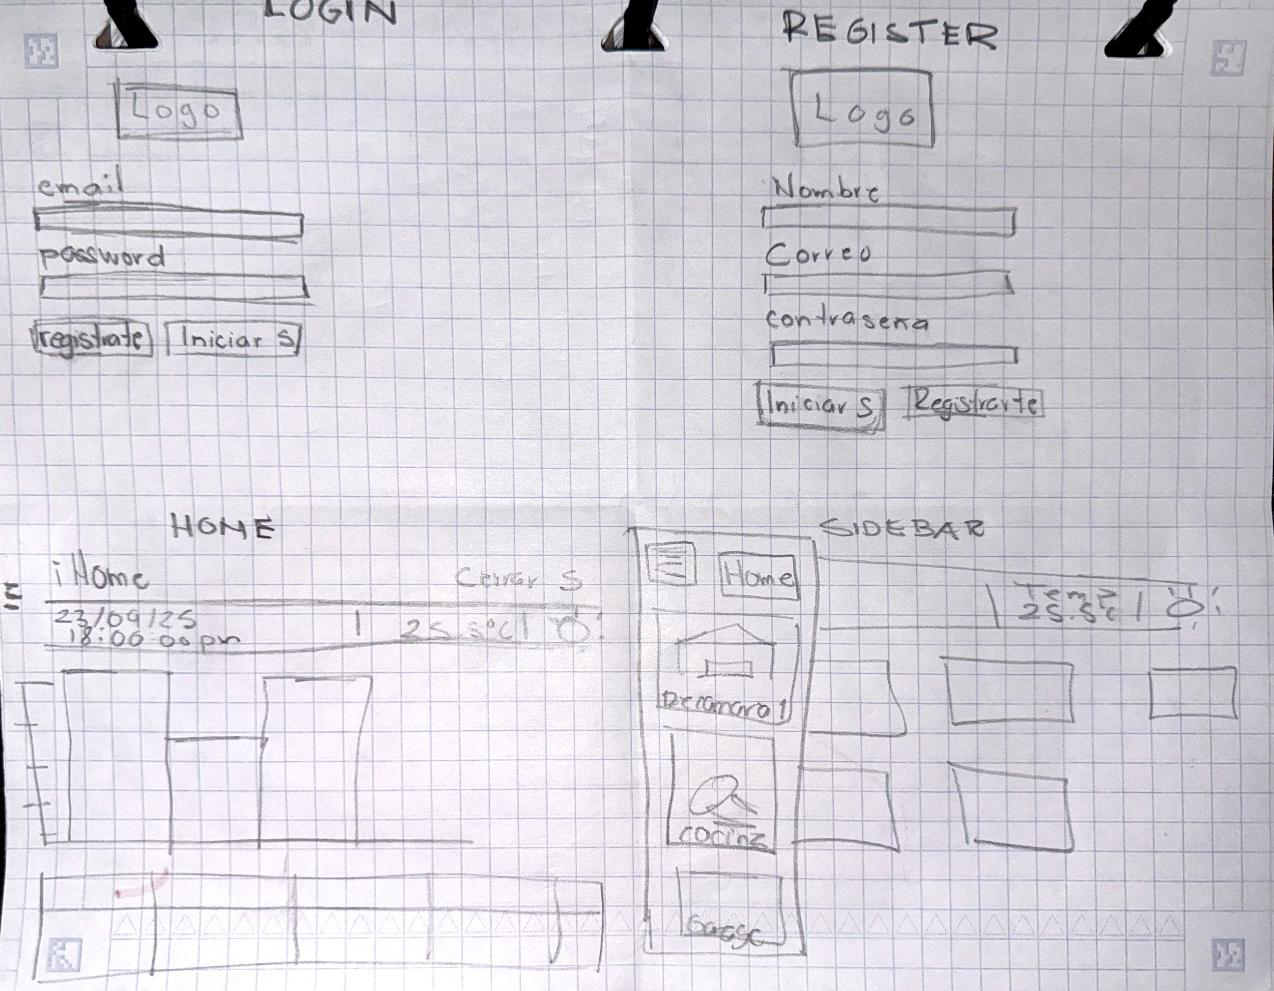 LOGIN
Logo
email
password
registrate
Iniciar S
REGISTER
Logo
Nombre
Correo
contraseña
Iniciar S
Registrarte
HOME
iHome
Cerrar S
23/09/25
18:00:00 pm
25.5°C
SIDEBAR
Home
Recamara 1
cocina
Garage
Temp
25.5°c